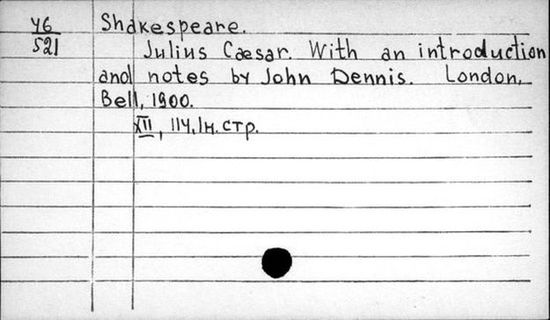 46 Shakespeare.
521 Julius Cæsar. With an introduction
and notes by John Dennis. London,
Bell, 1900.
XII, 114, 1н. стр.